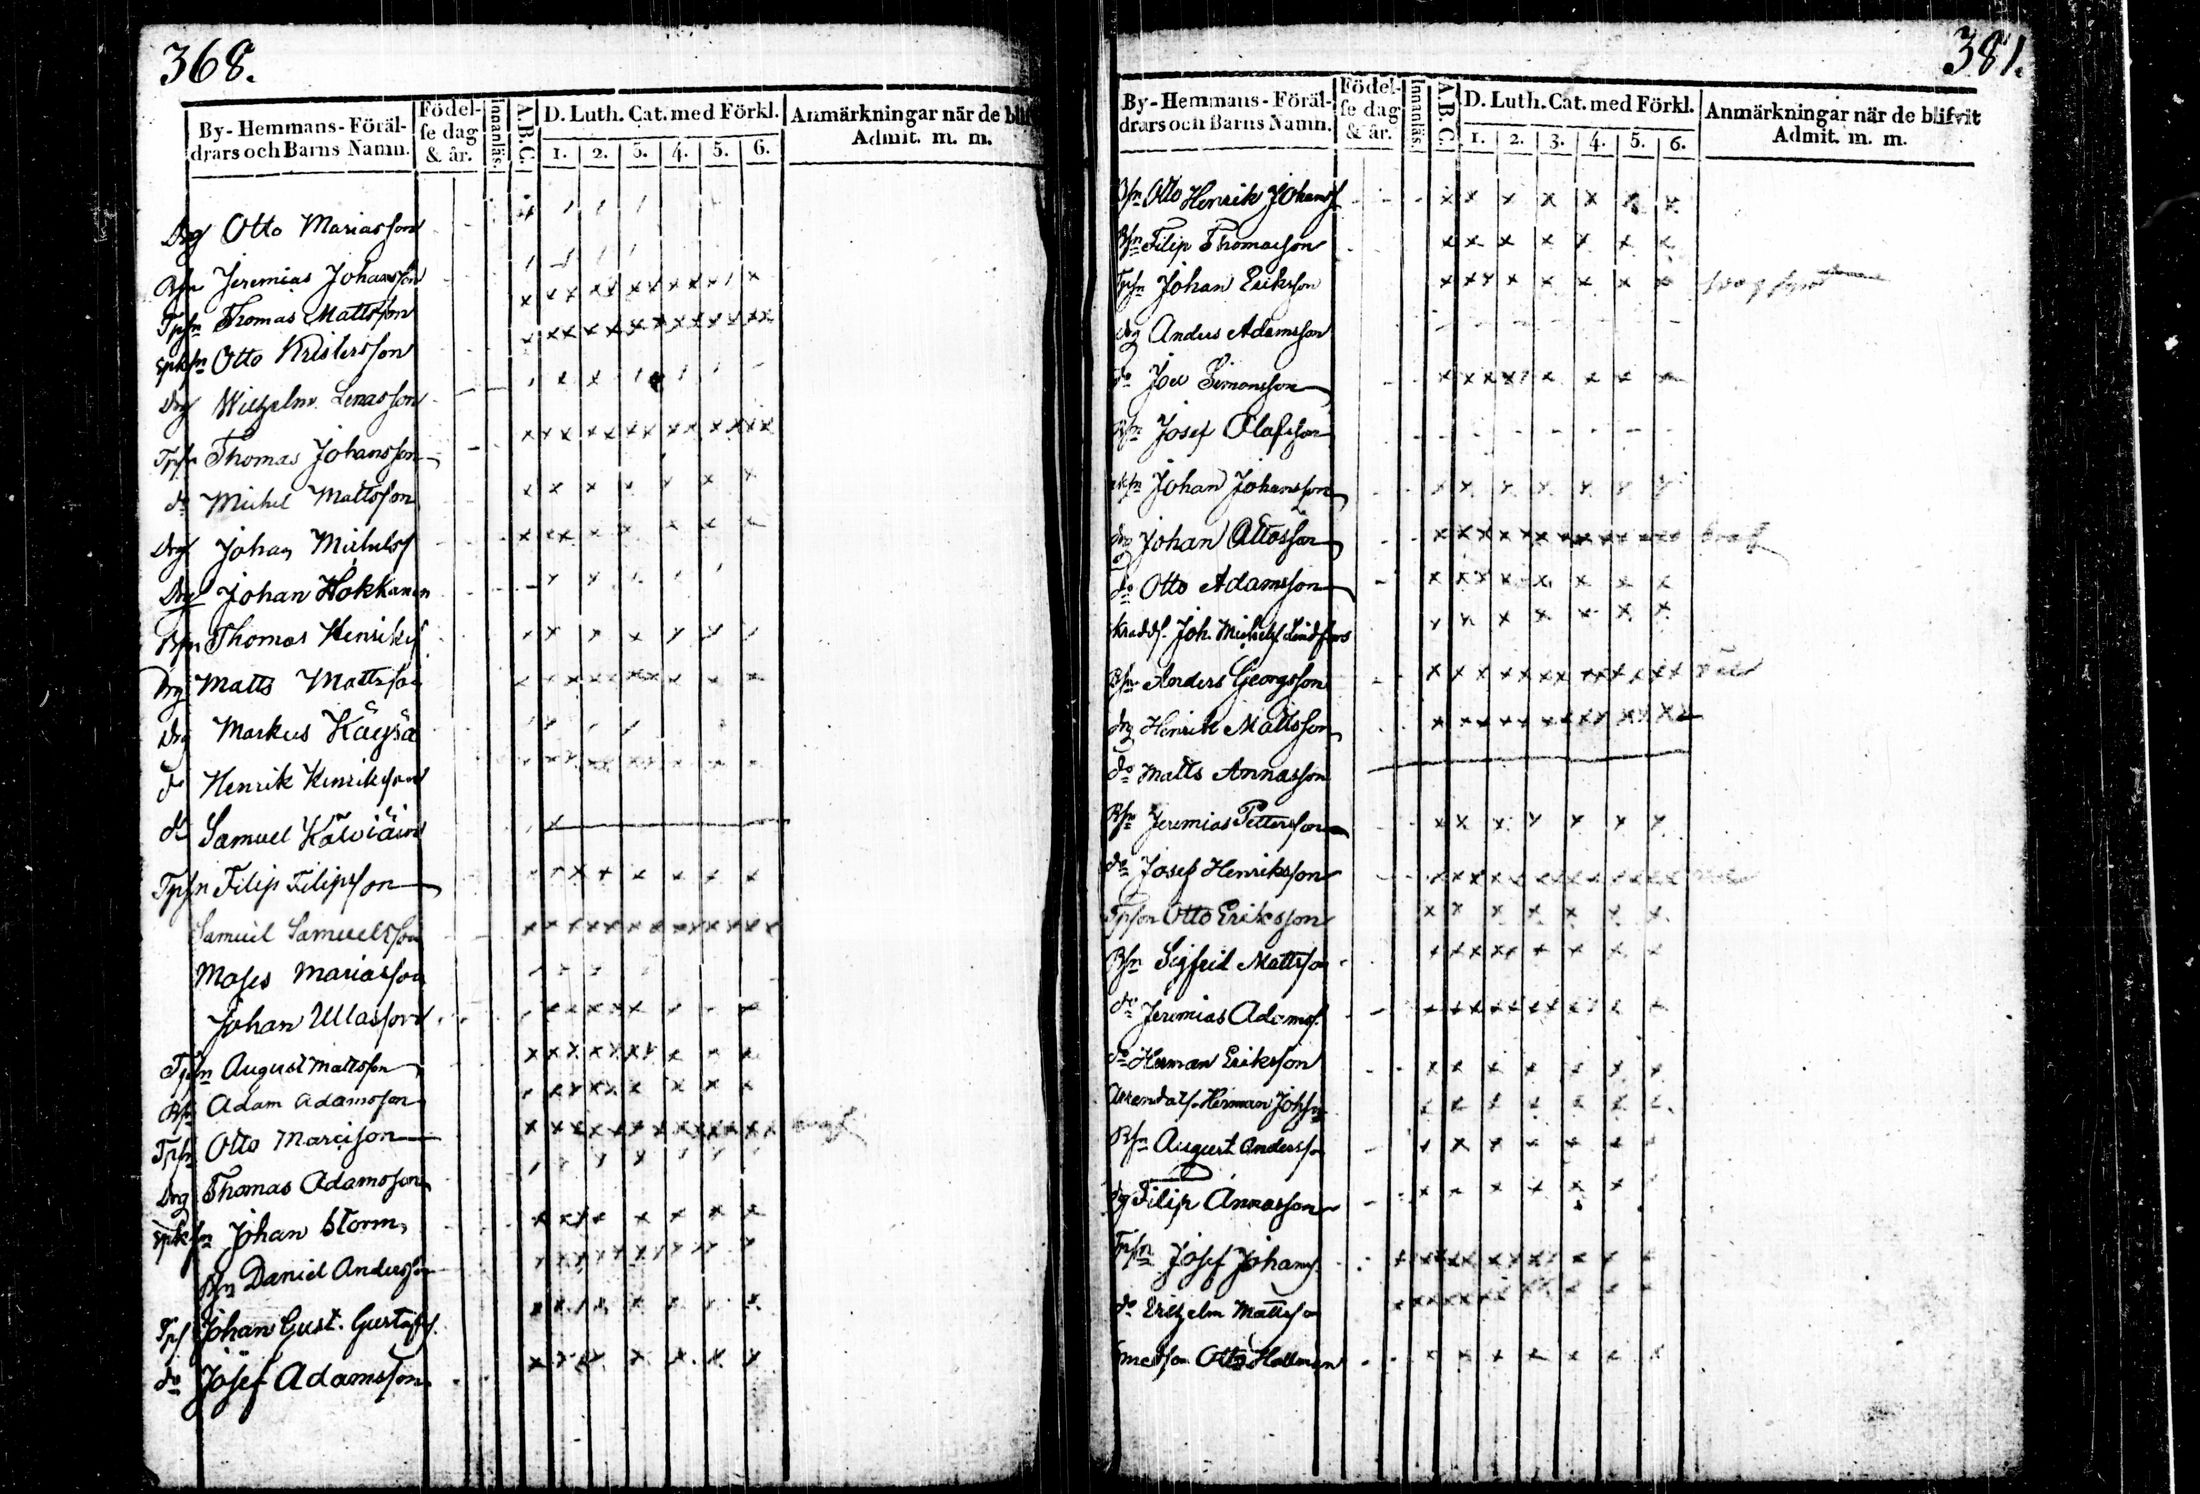 368.
By-Hemmans-Föräl-
drars och Barns Namn.
Födel-
se dag
& år.
Innanläs.
A.B.C.
D. Luth. Cat. med Förkl.
1. 2. 3. 4. 5. 6.
Anmärkningar när de blif
Admit. m. m.
Drg Otto Mariasson
Bsn Jeremias Johansson
Tpsn Thomas Mattsson
Spksn Otto Kristersson
Drg Wilhelm Lenasson
Tpsn Thomas Johansson
do Michel Mattsson
Drg Johan Michelss
Drg Johan Hokkanen
Bsn Thomas Henrikss
Drg Matts Mattsson
Drg Markus Käysä
do Henrik Henriksson
do Samuel
Tpsn Filip Filipsson
Samuel Samuelsson
Moses Mariasson
Johan Ullasson
Tpsn August Mattsson
Bsn Adam Adamsson
Tpsn Otto Marcisson
Drg Thomas Adamsson
Spksn Johan Storm
Bsn Daniel Andersson
Tps Johan Gust. Gustafs.
do Josef Adamsson
381.
By-Hemmans-Föräl-
drars och Barns Namn.
Födel-
se dag
& år.
Innanläs.
A.B.C.
D. Luth. Cat. med Förkl.
1. 2. 3. 4. 5. 6.
Anmärkningar när de blifvit
Admit. m. m.
Bsn Otto Henrik Johanss
Bsn Filip Thomasson
Tpsn Johan Eriksson
drg Anders Adamsson
do Joel Simonsson
Bsn Josef Olafsson
Johan Johansson
drg Johan Ottosson
do Otto Adamsson
Joh. Michelss Lindfors
Bsn Anders Georgsson
drg Henrik Mattsson
do Matts Annasson
Bsn Jeremias Pettersson
do Josef Henriksson
Tpson Otto Eriksson
Bsn Sigfrid Mattsson
do Jeremias Adamss.
do Herman Eriksson
Arrendats. Herman Johsn
Bsn August Andersson
drg Filip Annasson
Tpsn Josef Johanss.
do Wilhelm Mattsson
Otto Hallman